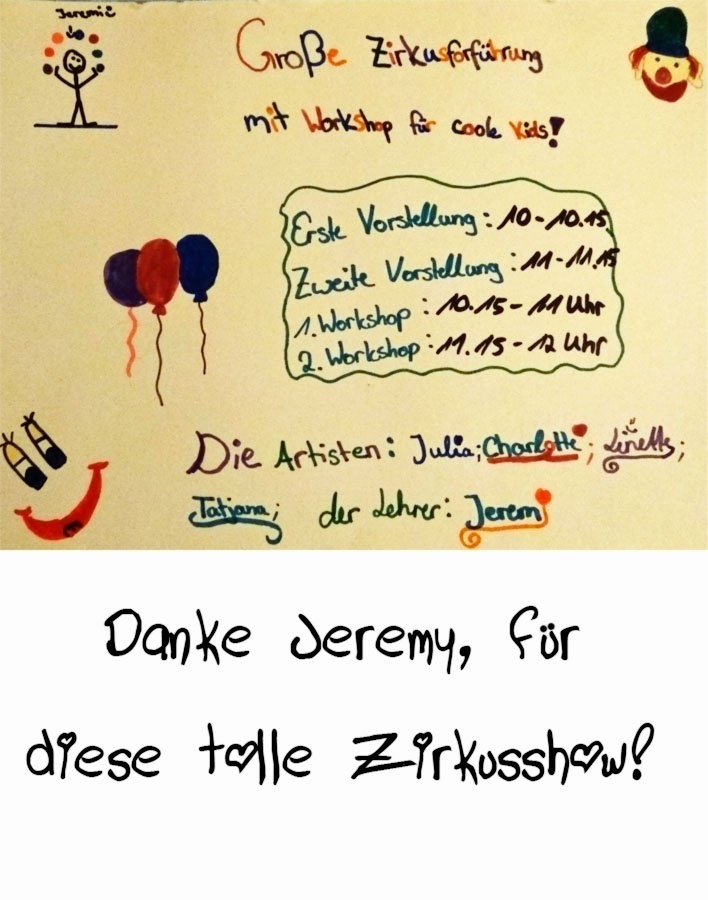 Jeremi
Große Zirkusforführung
mit Workshop für coole Kids!
Erste Vorstellung: 10-10.15
Zweite Vorstellung: 11-11.15
1. Workshop: 10.15-11 Uhr
2. Workshop: 11.15-12 Uhr
Die Artisten: Julia; Charlotte; Linett;
Tatjana; der Lehrer: Jeremi
Danke Jeremy, für
diese tolle Zirkusshow!